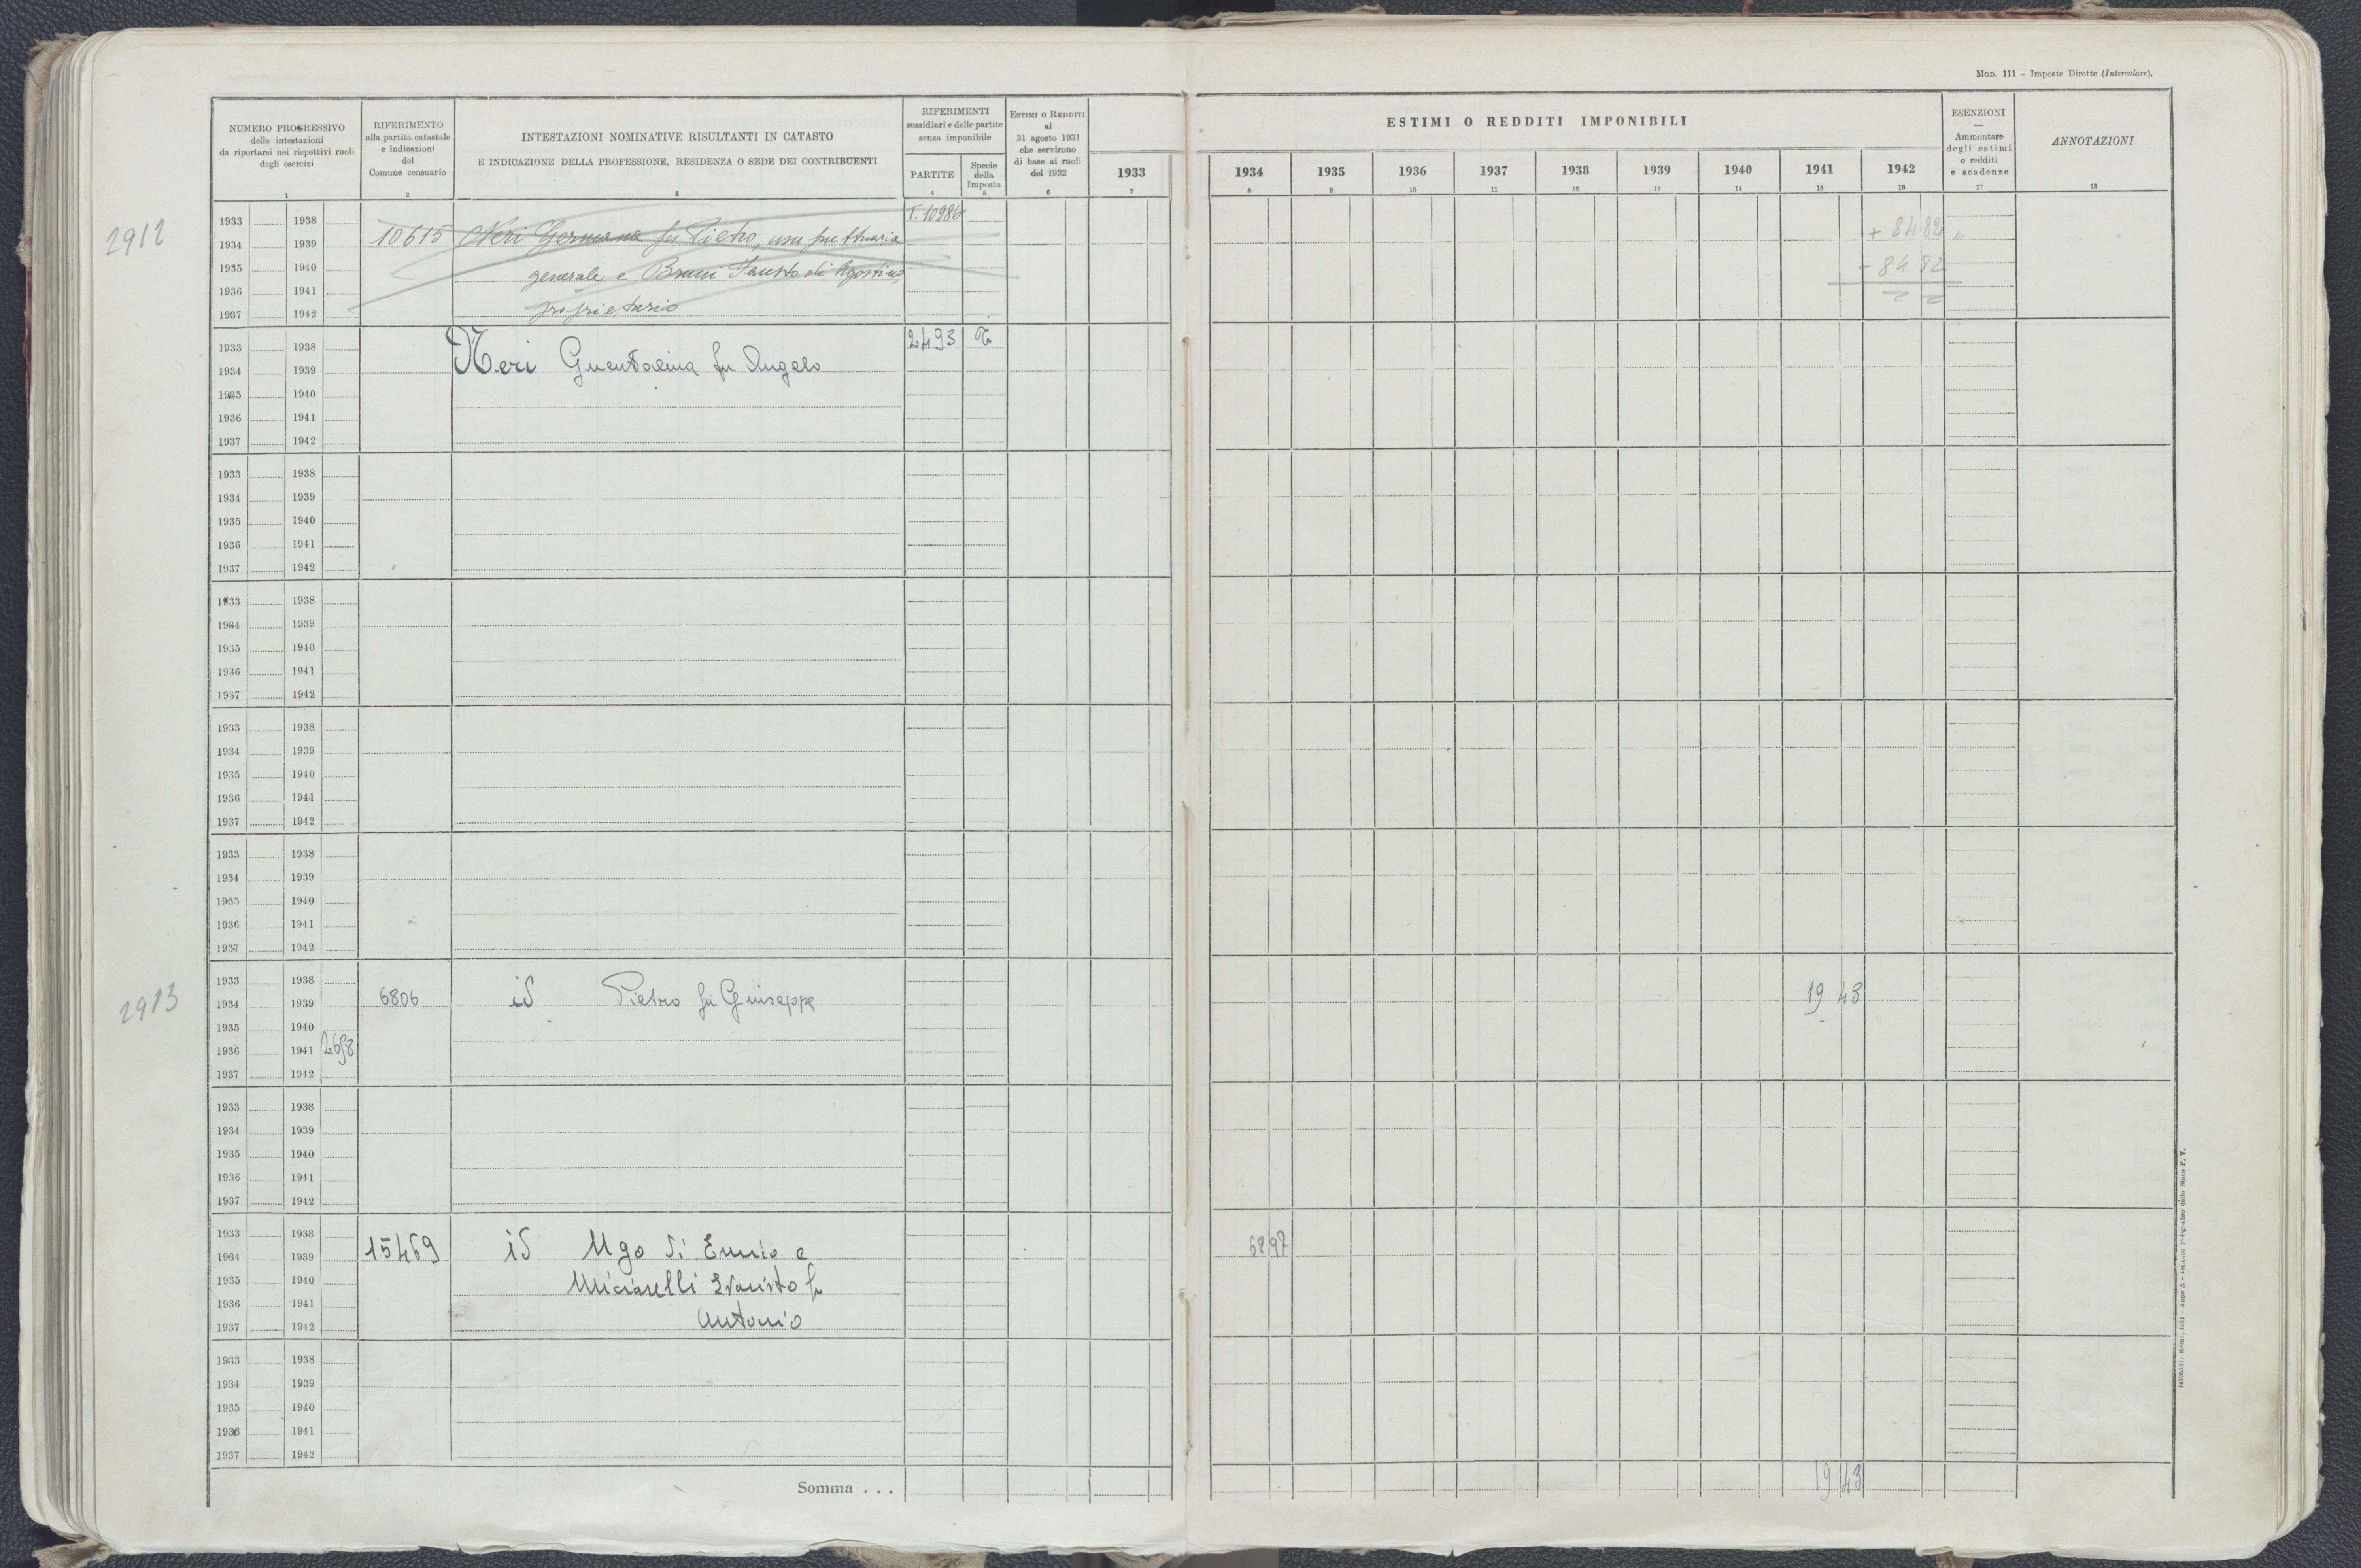 MOD. 111 – Imposte Dirette (Intercalare).
NUMERO PROGRESSIVO
delle intestazioni
da riportarsi nei rispettivi ruoli
degli esercizi
1
RIFERIMENTO
alla partita catastale
e indicazioni
del
Comune censuario
2
INTESTAZIONI NOMINATIVE RISULTANTI IN CATASTO
E INDICAZIONE DELLA PROFESSIONE, RESIDENZA O SEDE DEI CONTRIBUENTI
3
RIFERIMENTI
sussidiari e delle partite
senza imponibile
PARTITE
4
Specie
della
Imposta
5
ESTIMI O REDDITI
al
31 agosto 1931
che servirono
di base ai ruoli
del 1932
6
1933
7
ESTIMI O REDDITI IMPONIBILI
1934 1935 1936 1937 1938 1939 1940 1941 1942
8 9 10 11 12 13 14 15 16
ESENZIONI
—
Ammontare
degli estimi
o redditi
e scadenze
17
ANNOTAZIONI
18
2912
1933 1938 T. 10986
1934 1939 10615 Neri Germana fu Pietro, usufruttuaria + 84 82
1935 1940 generale e Bruni Fausto di Agostino, - 84 82
1936 1941
1937 1942 proprietario
1933 1938 2493
1934 1939 Neri Guendalina fu Angelo
1935 1940
1936 1941
1937 1942
1933 1938
1934 1939
1935 1940
1936 1941
1937 1942
1933 1938
1934 1939
1935 1940
1936 1941
1937 1942
1933 1938
1934 1939
1935 1940
1936 1941
1937 1942
1933 1938
1934 1939
1935 1940
1936 1941
1937 1942
2913
1933 1938
1934 1939 6806 id Pietro fu Giuseppe 19 43
1935 1940
1936 1941 2698
1937 1942
1933 1938
1934 1939
1935 1940
1936 1941
1937 1942
1933 1938
1934 1939 15469 id Ugo di Ennio e 68 97
1935 1940 Miciarelli Evaristo fu
1936 1941
1937 1942 Antonio
1933 1938
1934 1939
1935 1940
1936 1941
1937 1942
Somma . . . 19 43